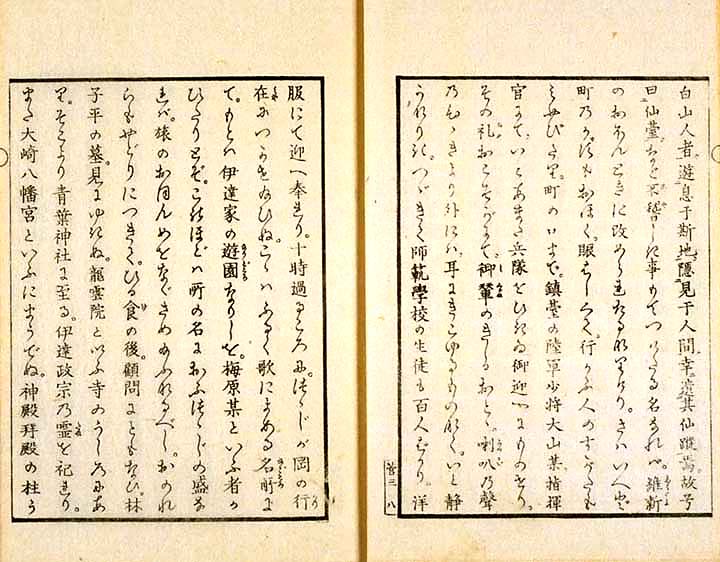 白山人者。遊息于断地。隠見于人間。幸遺其仙蹤焉。故号
曰仙臺なと不稽しき事もてつけたる名なれハ。維新
のおほんときに改められたるなりけり。さはいへと
町のおほく。眼もはるく。行かふ人のすかたも
みやひたり。町の口まて。鎮臺の陸軍少将大山某指揮
官にて。いとあまた兵隊をひきゐ御迎にものせり。
その礼おこそかにて。御輦のきしるおとゝ。喇叭乃聲
乃ひゝきより外にハ。耳にきこゆるものなく。いと静
うなりき。つゝきて師範學校の生徒も百人はかり。洋
菅三 八
服にて迎へ奉れり。十時過るころに。つゝしが岡の行
在につかせ給ひぬ。こゝハふるく歌によめる名所に
て。もとハ伊達家の遊園なりしを。梅原某といふ者か
ひたりとそ。このほとハ所の名におふつゝしの盛な
れバ。旅のおほんめをなくさめ給ふなるへし。おのれ
らもやとりにつきて。ひる食の後。顧問にともなひ。林
子平の墓見にゆきぬ。龍雲院といふ寺のうしろにあ
り。そこより青葉神社に至る。伊達政宗乃霊を祀れり。
また大崎八幡宮といふにまうてぬ。神殿拜殿の柱か